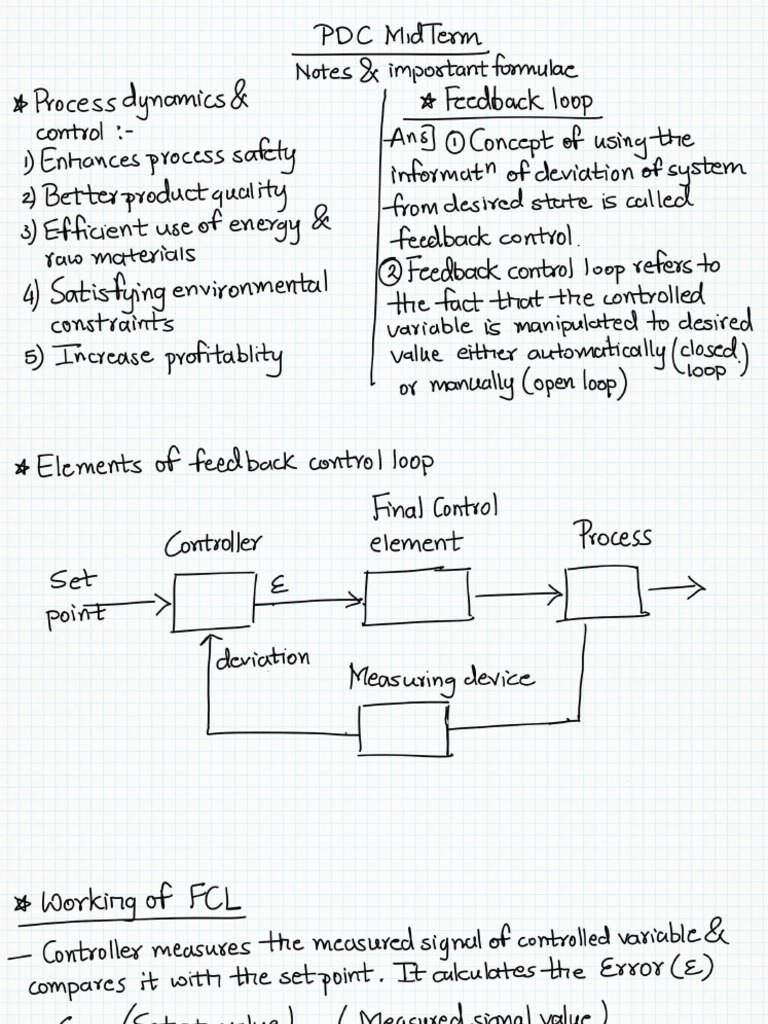 PDC MidTerm
Notes & important formulae
* Process dynamics &
control :-
1) Enhances process safety
2) Better product quality
3) Efficient use of energy &
raw materials
4) Satisfying environmental
constraints
5) Increase profitablity
* Feedback loop
Ans] ① Concept of using the
informatⁿ of deviation of system
from desired state is called
feedback control.
② Feedback control loop refers to
the fact that the controlled
variable is manipulated to desired
value either automatically (closed
loop)
or manually (open loop)
* Elements of feedback control loop
Final Control
element
Controller
Process
Set
point
ε
deviation
Measuring device
* Working of FCL
– Controller measures the measured signal of controlled variable &
compares it with the setpoint. It calculates the Error (ε)
(Setpt value) (Measured signal value)